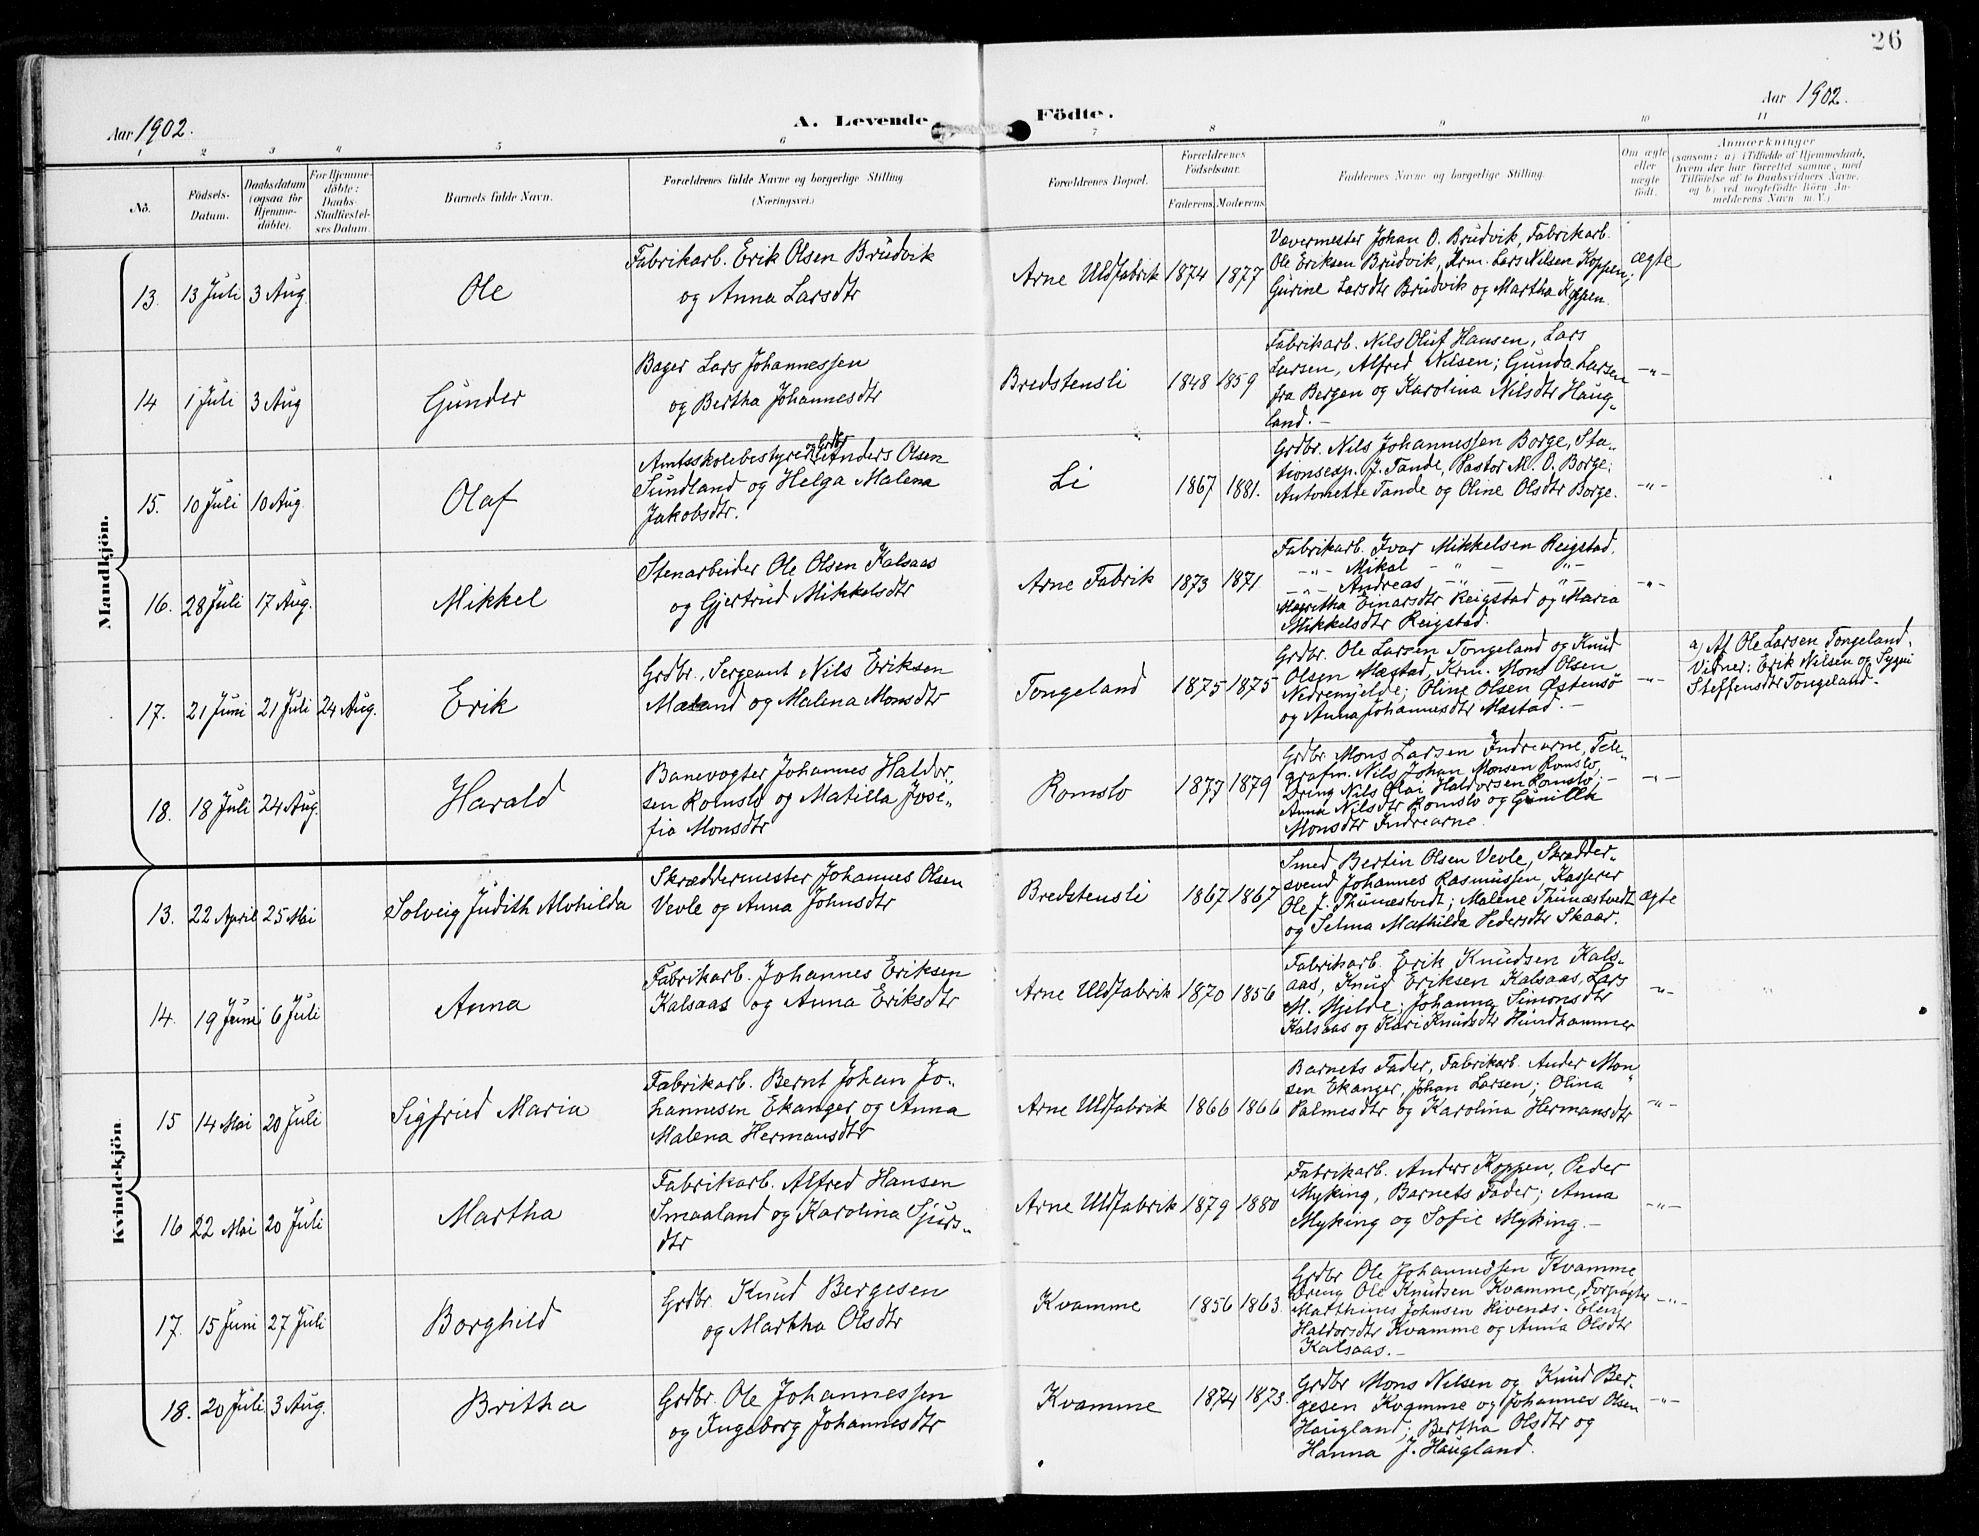 26
Aar 1902.
A. Levende
Födte.
Aar 1902.
1 2 3 4 5 6 7 8 9 10 11
No.
Födsels-
Datum.
Daabsdatum
(ogsaa for
Hjemme-
döbte).
For Hjemme-
döbte:
Daabs-
Stadfæstel-
ses Datum.
Barnets fulde Navn.
Forældrenes fulde Navne og borgerlige Stilling
(Næringsvei.)
Forældrenes Bopæl.
Forældrenes
Födselsaar.
Faderens.
Moderens.
Faddernes Navne og borgerlige Stilling.
Om ægte
eller
uægte
födt.
Anmærkninger
(saasom: a) i Tilfælde af Hjemmedaab,
hvem der har forrettet samme, med
Tilföielse af to Daabsvidners Navne,
og b) ved uegtefödte Börn An-
melderens Navn m.V.)
Mandkjön.
13. 13 Juli 3 Aug. Ole
Fabrikarb. Erik Olsen Brudvik
og Anna Larsdtr
Arne Uldfabrik 1874 1877
Vævermester Johan O. Brudvik, Fabrikarb.
Ole Eriksen Brudvik, Krm. Lars Nilsen Koppen;
Gurine Larsdtr Brudvik og Martha Koppen.
ægte
14 1 Juli 3 Aug Gunder
Bager Lars Johannessen
og Bertha Johannesdtr
Bredstensli 1848 1859
Fabrikarb. Nils Oluf Hansen, Lars
Larsen, Alfred Nilsen; Gunda Larsen
fra Bergen og Karolina Nilsdtr Haug-
land. -
-"-
15. 10 Juli 10 Aug. Olaf
Amtsskolebestyrer og Grdbr Anders Olsen
Sundland og Helga Malena
Jakobsdtr.
Li 1867 1881.
Grdbr. Nils Johannessen Borge, Sta-
tionsexp. J. Tande, Pastor M. O. Borge;
Antonette Tande og Oline Olsdtr Borge.
-"-
16. 28 Juli 17 Aug. Mikkel
Stenarbeider Ole Olsen Kalsaas
og Gjertrud Mikkelsdtr
Arne Fabrik 1873 1871
Fabrikarb. Ivar Mikkelsen Reigstad,
-"- Mikal - " - "-
-"- Andreas -"- - "-
Magritha Einarsdtr Reigstad og Maria
Mikkelsdtr Reigstad.
-"-
17. 21 Juni 21 Juli 24 Aug. Erik
Grdbr., Sergeant Nils Eriksen
Mæland og Malena Monsdtr
Tongeland 1875 1875
Grdbr. Ole Larsen Tongeland og Knud
Olsen Mæstad, Krm. Mons Olsen
Nedremjelde; Oline Olsen Østensø
og Anna Johannesdtr Mæstad. -
-"-
a) Af Ole Larsen Tongeland.
Vidner: Erik Nilsen og Sygni
Steffensdtr Tongeland. -
18. 18 Juli 24 Aug. Harald
Banevogter Johannes Haldor-
sen Romslo og Matilla Jose-
fia Monsdtr
Romslo 1877 1879
Grdbr Mons Larsen Indrearne, Tele-
grafm. Nils Johan Monsen Romslo,
Dreng Nils Olai Haldorsen Romslo; -
Anna Nilsdtr Romslo og Gunilla
Monsdtr Indrearne.
-"-
Kvindekjön.
13. 22 April 25 Mai Solveig Judith Alvhilda
Skræddermester Johannes Olsen
Vevle og Anna Johnsdtr
Bredstensli 1867 1867
Smed Bertin Olsen Vevle, Skrædder-
svend Johannes Rasmussen, Kasserer
Ole J. Thunæstvedt; Malene Thunæstvedt
og Selma Mathilda Pedersdtr Skaar.
ægte
14. 19 Juni 6 Juli Anna
Fabrikarb. Johannes Eriksen
Kalsaas og Anna Eriksdtr
Arne Uldfabrik 1870 1856
Fabrikarb. Erik Knudsen Kals-
aas, Knug Eriksen Kalsaas, Lars
M. Mjelde; Johanna Simonsdtr
Kalsaas og Kari Knudsdtr Hundhammer
-"-
15 14 Mai 20 Juli Sigfried Maria
Fabrikarb. Bernt Johan Jo-
hannesen Ekanger og Anna
Malena Hermansdtr
Arne Uldfabrik 1866 1866
Barnets Fader, Fabrikarb. Ander Mon-
sen Ekanger, Johan Larsen; Olina
Palmesdtr og Karolina Hermansdtr
-"-
16 22 Mai 20 Juli Martha
Fabrikarb. Alfred Hansen
Smaaland og Karolina Sjurs-
dtr
Arne Uldfabrik 1879 1880
Fabrikarb. Anders Koppen, Peder
Myking, Barnets Fader; Anna
Myking og Sofie Myking. -
-"-
17. 15 Juni 27 Juli Borghild
Grdbr. Knud Bergesen
og Martha Olsdtr
Kvamme 1856 1863.
Grdbr Ole Johannessen Kvamme
Dreng Ole Knudsen Kvamme, Forpagter
Matthines Johnsen Hivenæs; Elen
Haldorsdtr Kvamme og Anna Olsdtr
Kalsaas. -
-"-
18. 20 Juli 3 Aug. Britha
Grdbr. Ole Johannessen
og Ingeborg Johannesdtr
Kvamme 1874 1873.
Grdbr Mons Nilsen og Knud Ber-
gesen Kvamme og Johannes Olsen
Haugland; Bertha Olsdtr og
Hanna J. Haugland.
-"-